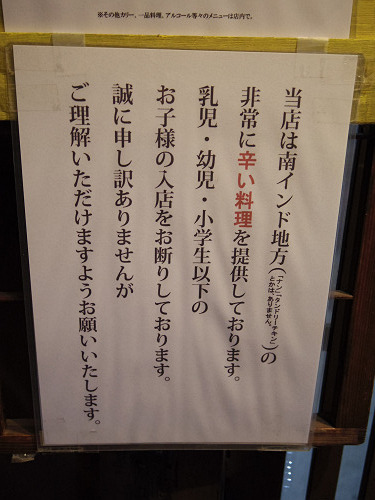 ※その他カリー、一品料理、アルコール等々のメニューは店内で。
当店は南インド地方(「ナン」「タンドリーチキン」とかは、ありません。)の
非常に辛い料理を提供しております。
乳児・幼児・小学生以下の
お子様の入店をお断りしております。
誠に申し訳ありませんが
ご理解いただけますようお願いいたします。